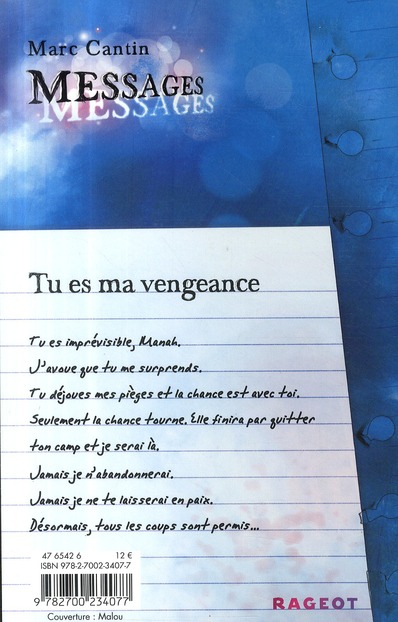 Marc Cantin
MESSAGES
MESSAGES
Tu es ma vengeance
Tu es imprévisible, Manah.
J'avoue que tu me surprends.
Tu déjoues mes pièges et la chance est avec toi.
Seulement la chance tourne. Elle finira par quitter
ton camp et je serai là.
Jamais je n'abandonnerai.
Jamais je ne te laisserai en paix.
Désormais, tous les coups sont permis...
47 6542 6 12 €
ISBN 978-2-7002-3407-7
9 782700 234077
Couverture : Malou
RAGEOT